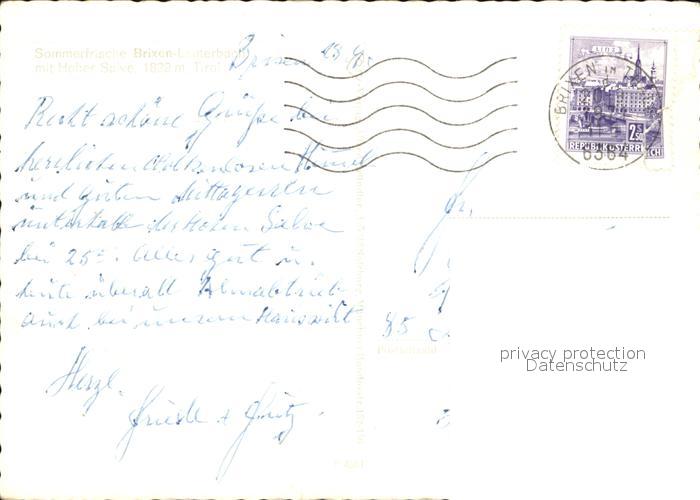 Sommerfrische Brixen-Lauterbach
mit Hoher Salve, 1829 m, Tirol
Brixen
Recht schöne Grüße bei
herrlichem wolkenlosen Himmel
und guten Mittagessen
unterhalb der Hohen Salve
bei 25°. Alles gut u.
heute überall Almabtrieb
auch bei unserem Hauswirt
Herzl.
Friedl + Fritz.
LINZ
2.50
REPUBLIK ÖSTERREICH
BRIXEN IM T
6364
Fr.
85
Postleitzahl
privacy protection
Datenschutz